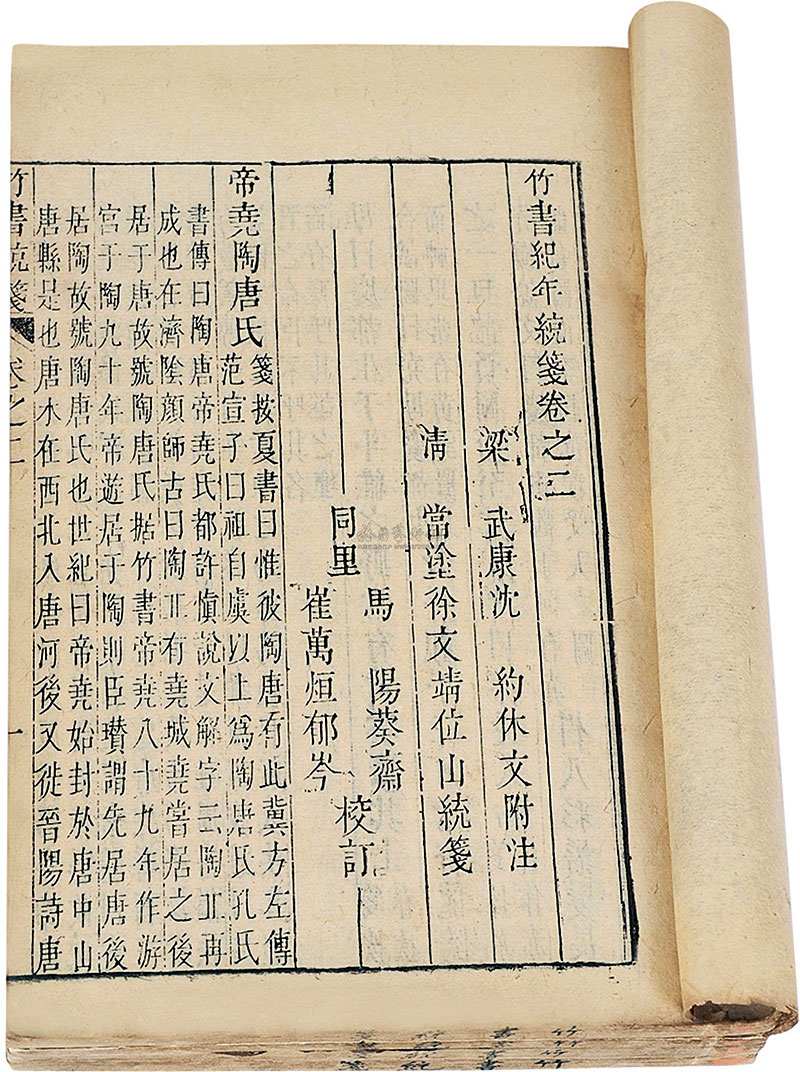 竹書紀年統箋卷之二
梁 武康沈 約休文附注
清 當塗徐文靖位山統箋
馬 陽葵齋
同里 校訂
崔萬烜郁岑
帝堯陶唐氏
箋按夏書曰惟彼陶唐有此冀方左傳
范宣子曰祖自虞以上爲陶唐氏孔氏
書傳曰陶唐帝堯氏都許慎說文解字云陶丘再
成也在濟陰顏師古曰陶丘有堯城堯嘗居之後
居于唐故號陶唐氏據竹書帝堯八十九年作游
宮于陶九十年帝遊居于陶則臣瓚謂先居唐後
居陶故號陶唐氏也世紀曰帝堯始封於唐中山
唐縣是也唐水在西北入唐河後又徙晉陽詩唐
竹書統箋 卷之二 一